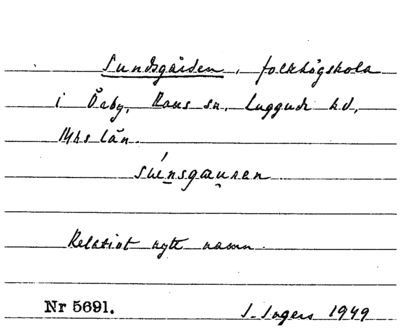 Sundsgården, folkhögskola
i Örby, Raus sn, Luggude hd,
Mhs län.
Relativt nytt namn.
Nr 5691. J. Ingers 1949